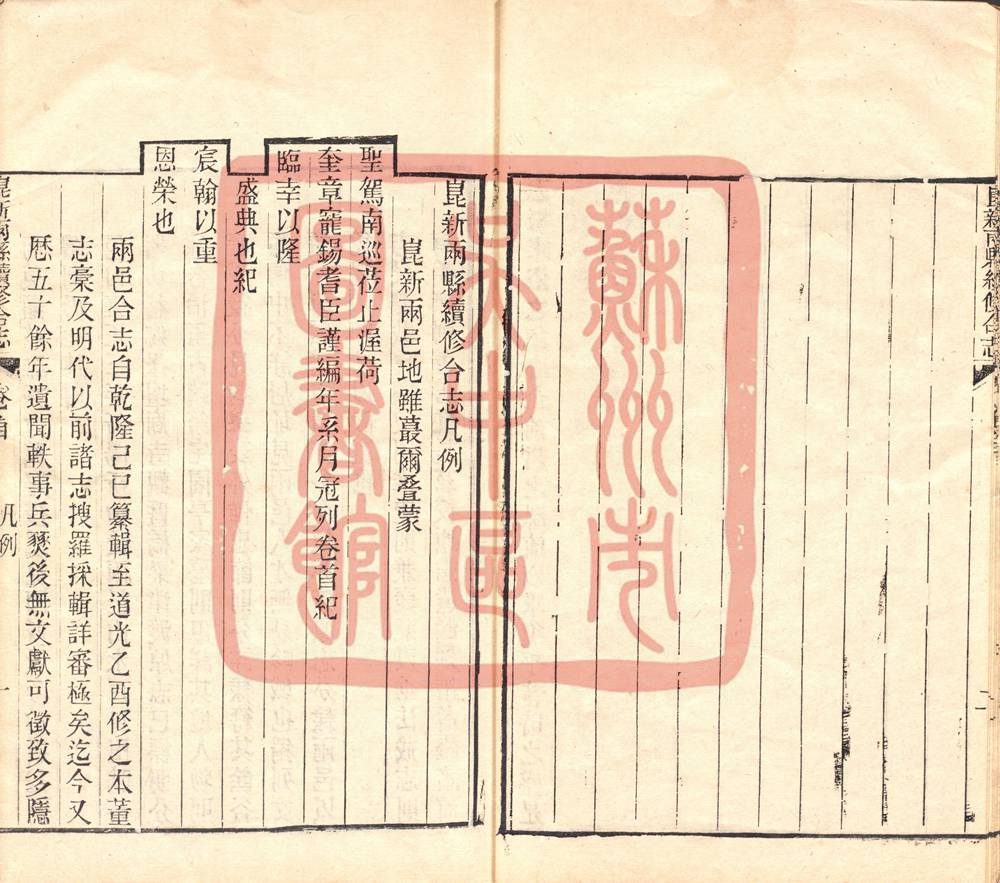 崑新兩縣續修合志
崑新兩縣續修合志凡例
崑新兩邑地雖蕞爾叠蒙
聖駕南巡莅止渥荷
奎章寵錫耆臣謹編年系月冠列卷首紀
臨幸以隆
盛典也紀
宸翰以重
恩榮也
兩邑合志自乾隆己巳纂輯至道光乙酉修之本董
志稾及明代以前諸志搜羅採輯詳審極矣迄今又
歷五十餘年遺聞軼事兵燹後無文獻可徵致多隱
崑新兩縣續修合志 卷首 凡例 一
蘇州市
吴中區
圖書館